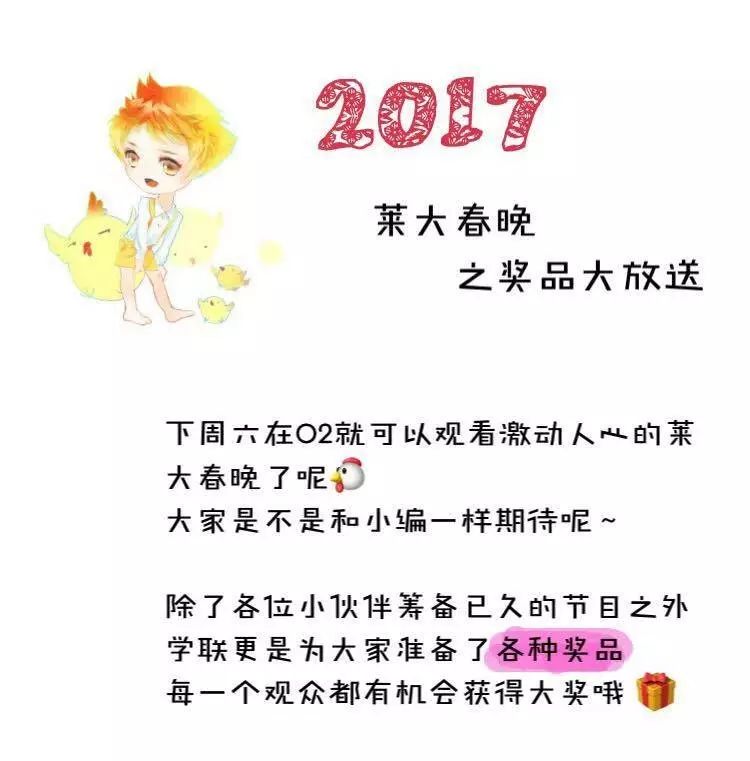 2017
莱大春晚
之奖品大放送
下周六在O2就可以观看激动人心的莱
大春晚了呢🐔
大家是不是和小编一样期待呢~
除了各位小伙伴筹备已久的节目之外
学联更是为大家准备了各种奖品
每一个观众都有机会获得大奖哦🎁